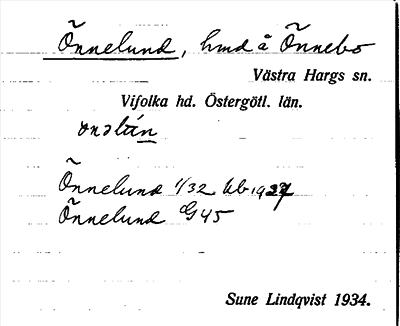 Õnnelund, hmd å Õnnebo
Västra Hargs sn.
Vifolka hd. Östergötl. län.
Õnnelund 1/32 kb. 1927
Õnnelund G45
Sune Lindqvist 1934.